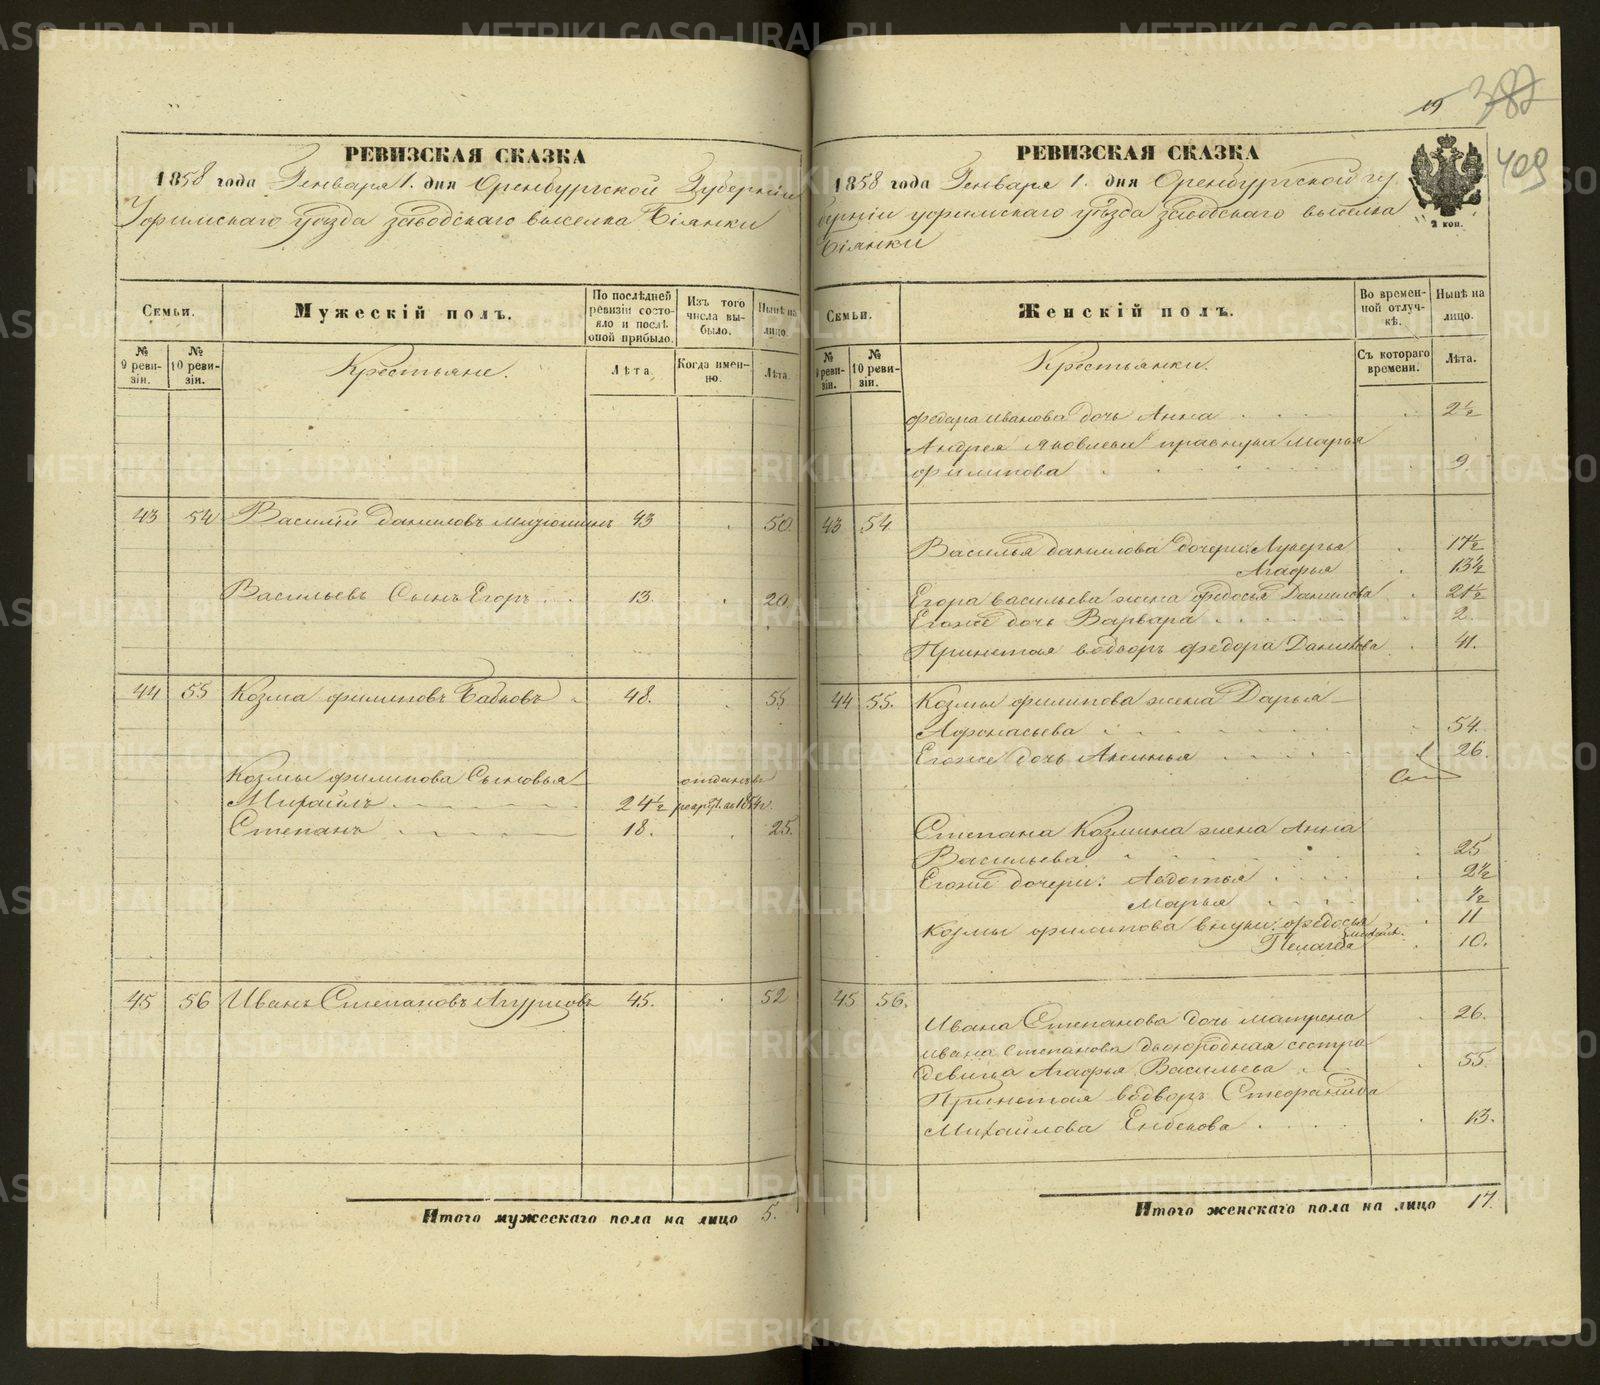 РЕВИЗСКАЯ СКАЗКА
1858 года Генваря 1. дня Оренбургской Губернии
Уфимскаго уѣзда заводскаго выселка Биянки
Семьи.
Мужескій полъ.
По послѣдней ревизіи состояло и послѣ оной прибыло.
Изъ того числа выбыло.
Нынѣ на лицо.
№ 9 ревизіи.
№ 10 ревизіи.
Крестьяне.
Лѣта.
Когда именно.
Лѣта.
43 54 Василий Даниловъ 43 50.
Васильевъ Сынъ Егоръ 13. 20
44 55 Козма филиповъ Бабковъ 48. 55
Козмы филипова Сыновья
Михайлъ 24½ отданъ въ рекрут. въ 1854 г.
Степанъ 18. 25.
45 56 Иванъ Степановъ 45. 52
Итого мужескаго пола на лицо 5.
19 387
409
РЕВИЗСКАЯ СКАЗКА
1858 года Генваря 1. дня Оренбургской гу
берніи уфимскаго уѣзда заводскаго выселка
Биянки
2 коп.
Семьи.
Женскій полъ.
Во временной отлучкѣ.
Нынѣ на лицо.
№ 9 ревизіи.
№ 10 ревизіи.
Крестьянки.
Съ котораго времени.
Лѣта.
федара иванова дочь Анна 2½
Андрея Яковлева правнука Марья
филипова 9.
43 54
Василья данилова дочери: Лукерья 17½
Агафья 13½
Егора васильева жена федосья Данилова 21½
Егоже дочь Варвара 2.
Принятая вдворъ федора Данилова 41.
44 55. Козмы филипова жена Дарья
Афонасьева 54.
Егоже дочь Аксинья 26.
Степана Козмина жена Анна
Васильева 25
Егоже дочери: Авдотья 2½
Марья ½
Козмы филипова внуки: федосья 11
Пелагея Михайл. 10.
45 56.
Ивана Степанова дочь матрена 26.
ивана степанова двоюродная сестра
девица Агафья Васильева 55.
Принятая вдворъ Стефанида
Михайлова 13.
Итого женскаго пола на лицо 17.
METRIKI.GASO-URAL.RU